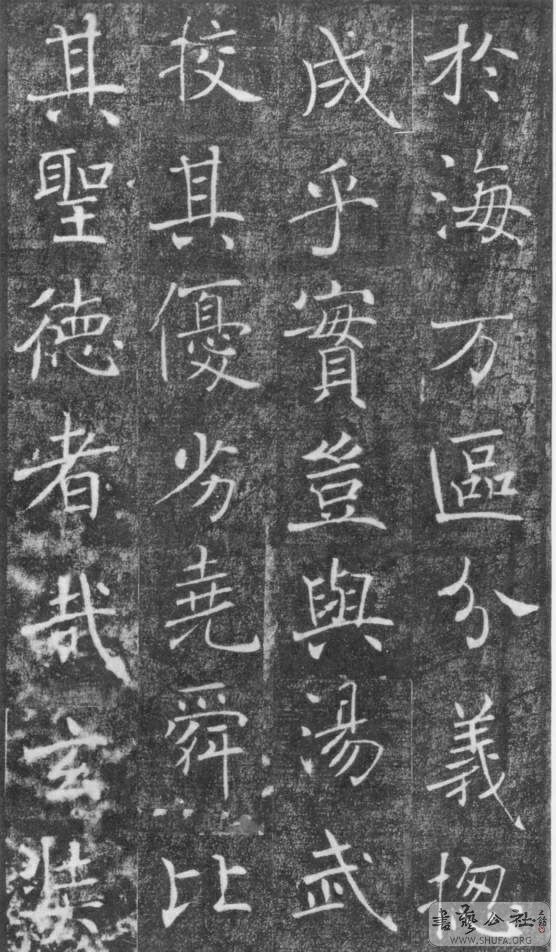 於海万區分義揔
成乎實豈與湯武
挍其優劣堯舜比
其聖徳者哉玄奘
書藝公社
WWW.SHUFA.ORG